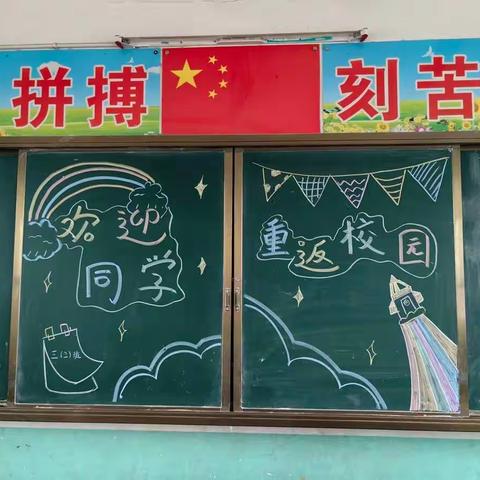 拼搏
刻苦
欢迎
同学
重返校园
三(2)班